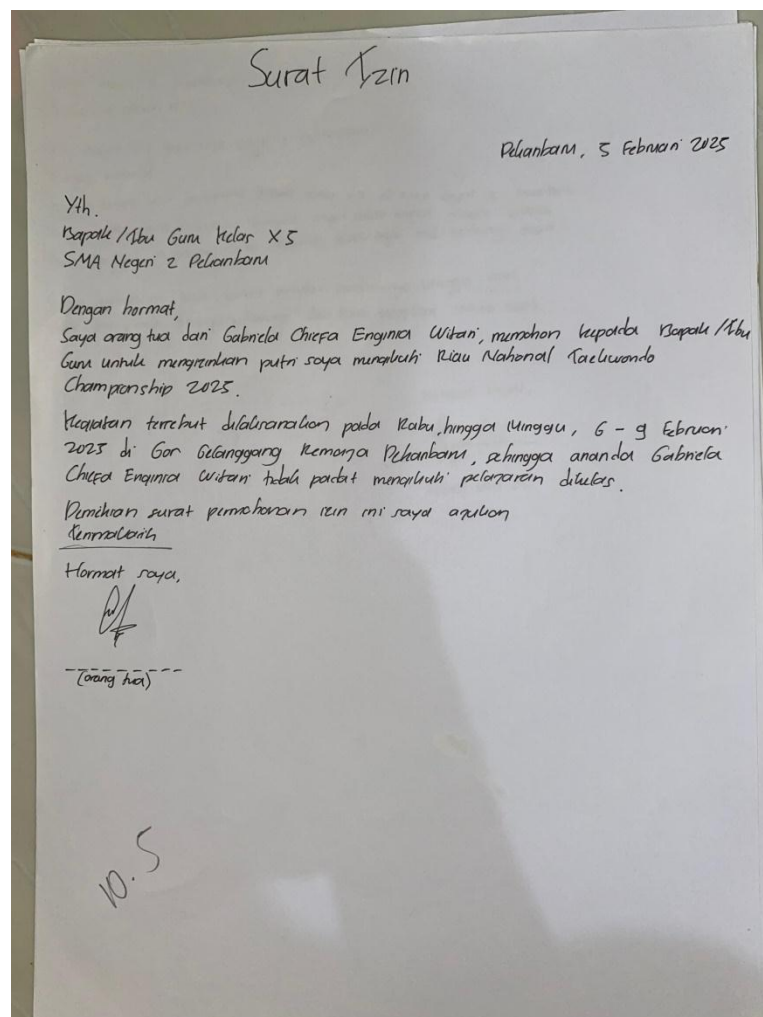 Surat Izin
Pekanbaru, 5 Februari 2025
Yth.
Bapak/Ibu Guru Kelas X5
SMA Negeri 2 Pekanbaru
Dengan hormat,
Saya orang tua dari Gabriela Chiefa Enginia Witari, memohon kepada Bapak/Ibu
Guru untuk mengizinkan putri saya mengikuti Riau National Taekwondo
Championship 2025.
Kegiatan tersebut dilaksanakan pada Rabu, hingga Minggu, 6 - 9 Februari
2025 di Gor Gelanggang Remaja Pekanbaru, sehingga ananda Gabriela
Chiefa Enginia Witari tidak padat mengikuti pelajaran dikelas.
Demikian surat permohonan izin ini saya ajukan
Terimakasih
Hormat saya,
(orang tua)
10.5